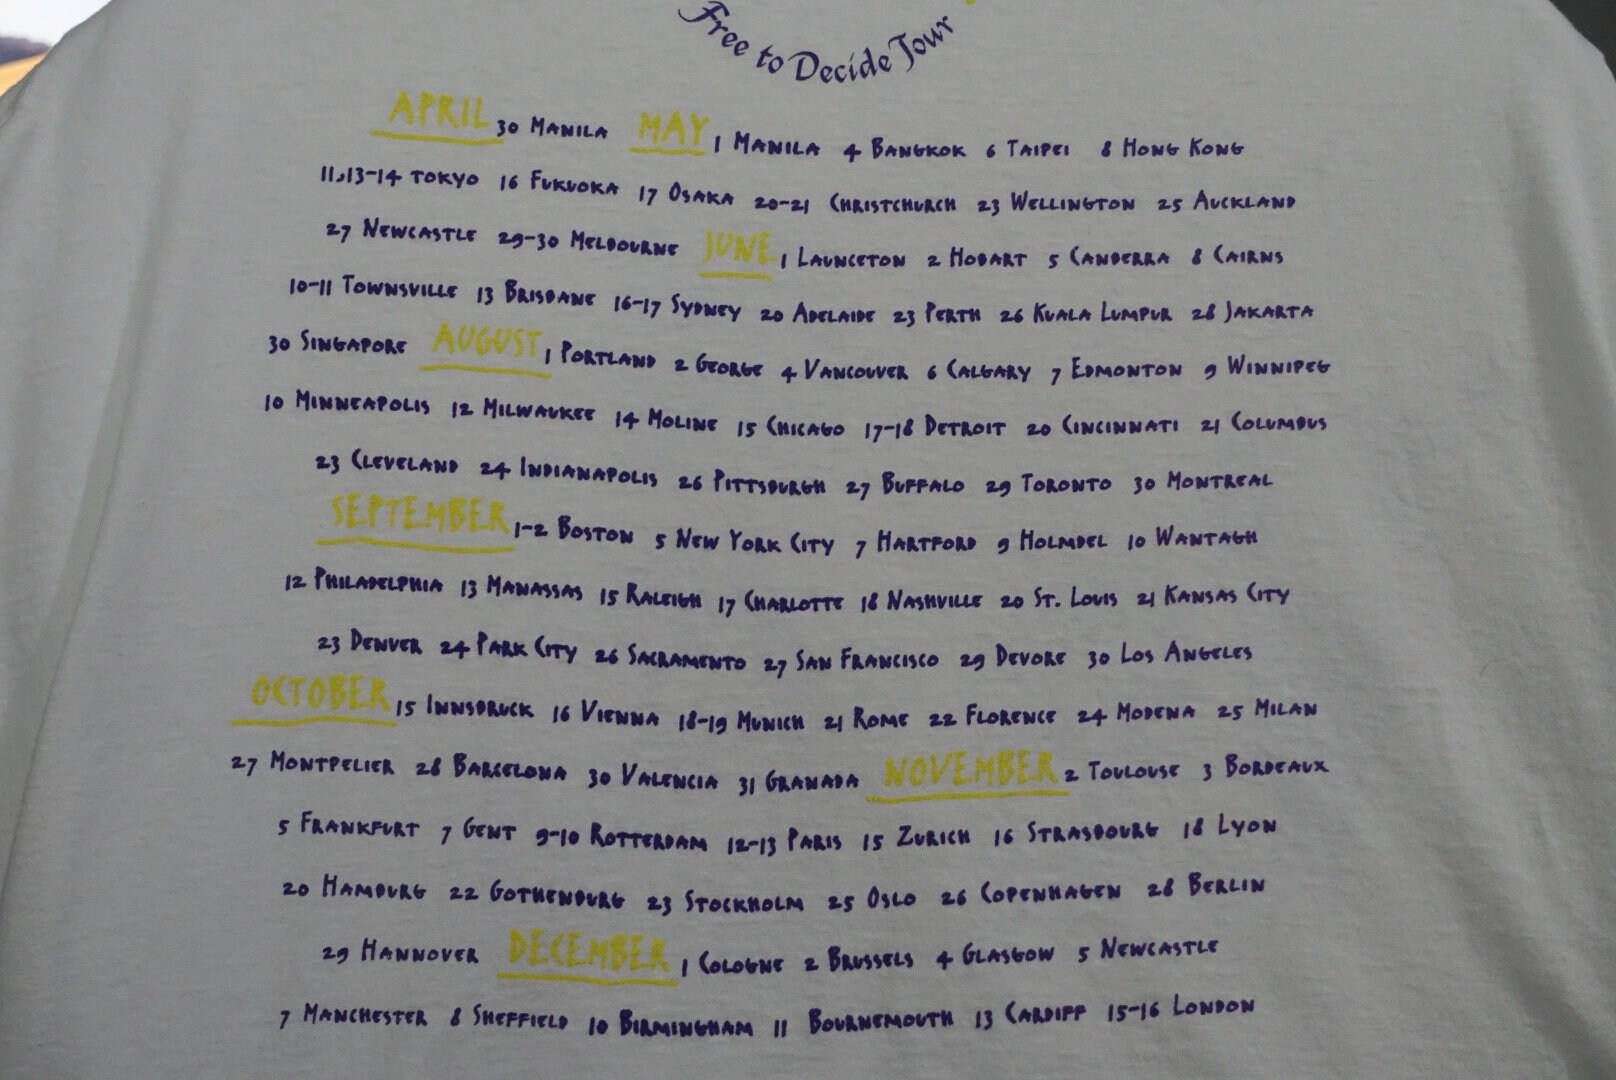 Free to Decide Tour
APRIL 30 MANILA MAY 1 MANILA 4 BANGKOK 6 TAIPEI 8 HONG KONG
11,13-14 TOKYO 16 FUKUOKA 17 OSAKA 20-21 CHRISTCHURCH 23 WELLINGTON 25 AUCKLAND
27 NEWCASTLE 29-30 MELBOURNE JUNE 1 LAUNCETON 2 HOBART 5 CANBERRA 8 CAIRNS
10-11 TOWNSVILLE 13 BRISBANE 16-17 SYDNEY 20 ADELAIDE 23 PERTH 26 KUALA LUMPUR 28 JAKARTA
30 SINGAPORE AUGUST 1 PORTLAND 2 GEORGE 4 VANCOUVER 6 CALGARY 7 EDMONTON 9 WINNIPEG
10 MINNEAPOLIS 12 MILWAUKEE 14 MOLINE 15 CHICAGO 17-18 DETROIT 20 CINCINNATI 21 COLUMBUS
23 CLEVELAND 24 INDIANAPOLIS 26 PITTSBURGH 27 BUFFALO 29 TORONTO 30 MONTREAL
SEPTEMBER 1-2 BOSTON 5 NEW YORK CITY 7 HARTFORD 9 HOLMDEL 10 WANTAGH
12 PHILADELPHIA 13 MANASSAS 15 RALEIGH 17 CHARLOTTE 18 NASHVILLE 20 ST. LOUIS 21 KANSAS CITY
23 DENVER 24 PARK CITY 26 SACRAMENTO 27 SAN FRANCISCO 29 DEVORE 30 LOS ANGELES
OCTOBER 15 INNSBRUCK 16 VIENNA 18-19 MUNICH 21 ROME 22 FLORENCE 24 MODENA 25 MILAN
27 MONTPELIER 28 BARCELONA 30 VALENCIA 31 GRANADA NOVEMBER 2 TOULOUSE 3 BORDEAUX
5 FRANKFURT 7 GENT 9-10 ROTTERDAM 12-13 PARIS 15 ZURICH 16 STRASBOURG 18 LYON
20 HAMBURG 22 GOTHENBURG 23 STOCKHOLM 25 OSLO 26 COPENHAGEN 28 BERLIN
29 HANNOVER DECEMBER 1 COLOGNE 2 BRUSSELS 4 GLASGOW 5 NEWCASTLE
7 MANCHESTER 8 SHEFFIELD 10 BIRMINGHAM 11 BOURNEMOUTH 13 CARDIFF 15-16 LONDON